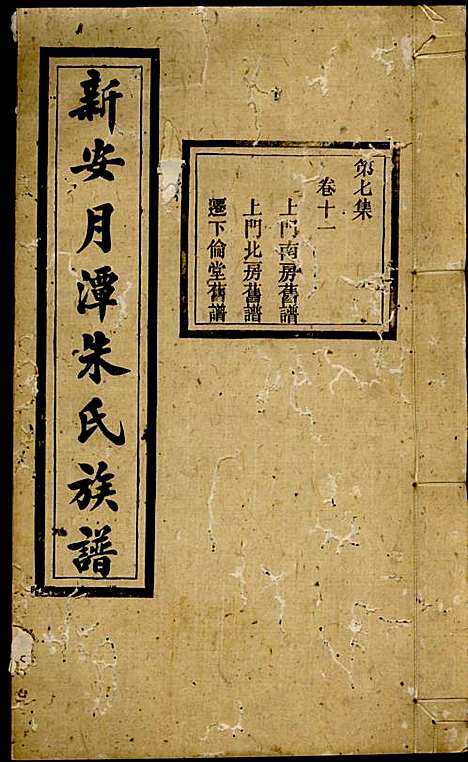 第七集
卷十一
上門南房舊譜
上門北房舊譜
遷下倫堂舊譜
新安月潭朱氏族譜